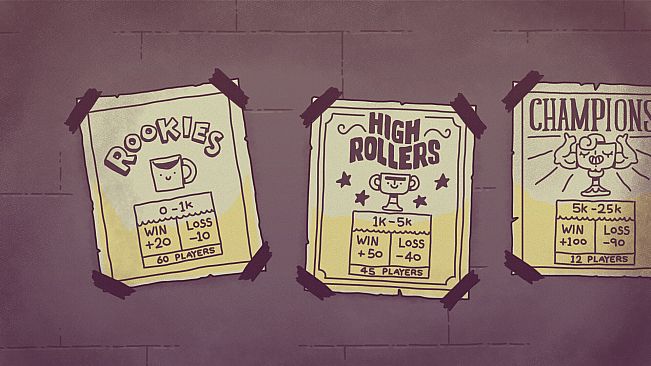 ROOKIES
0-1K
WIN LOSS
+20 -10
60 PLAYERS
HIGH
ROLLERS
1K-5K
WIN LOSS
+50 -40
45 PLAYERS
CHAMPIONS
5K-25K
WIN LOSS
+100 -90
12 PLAYERS